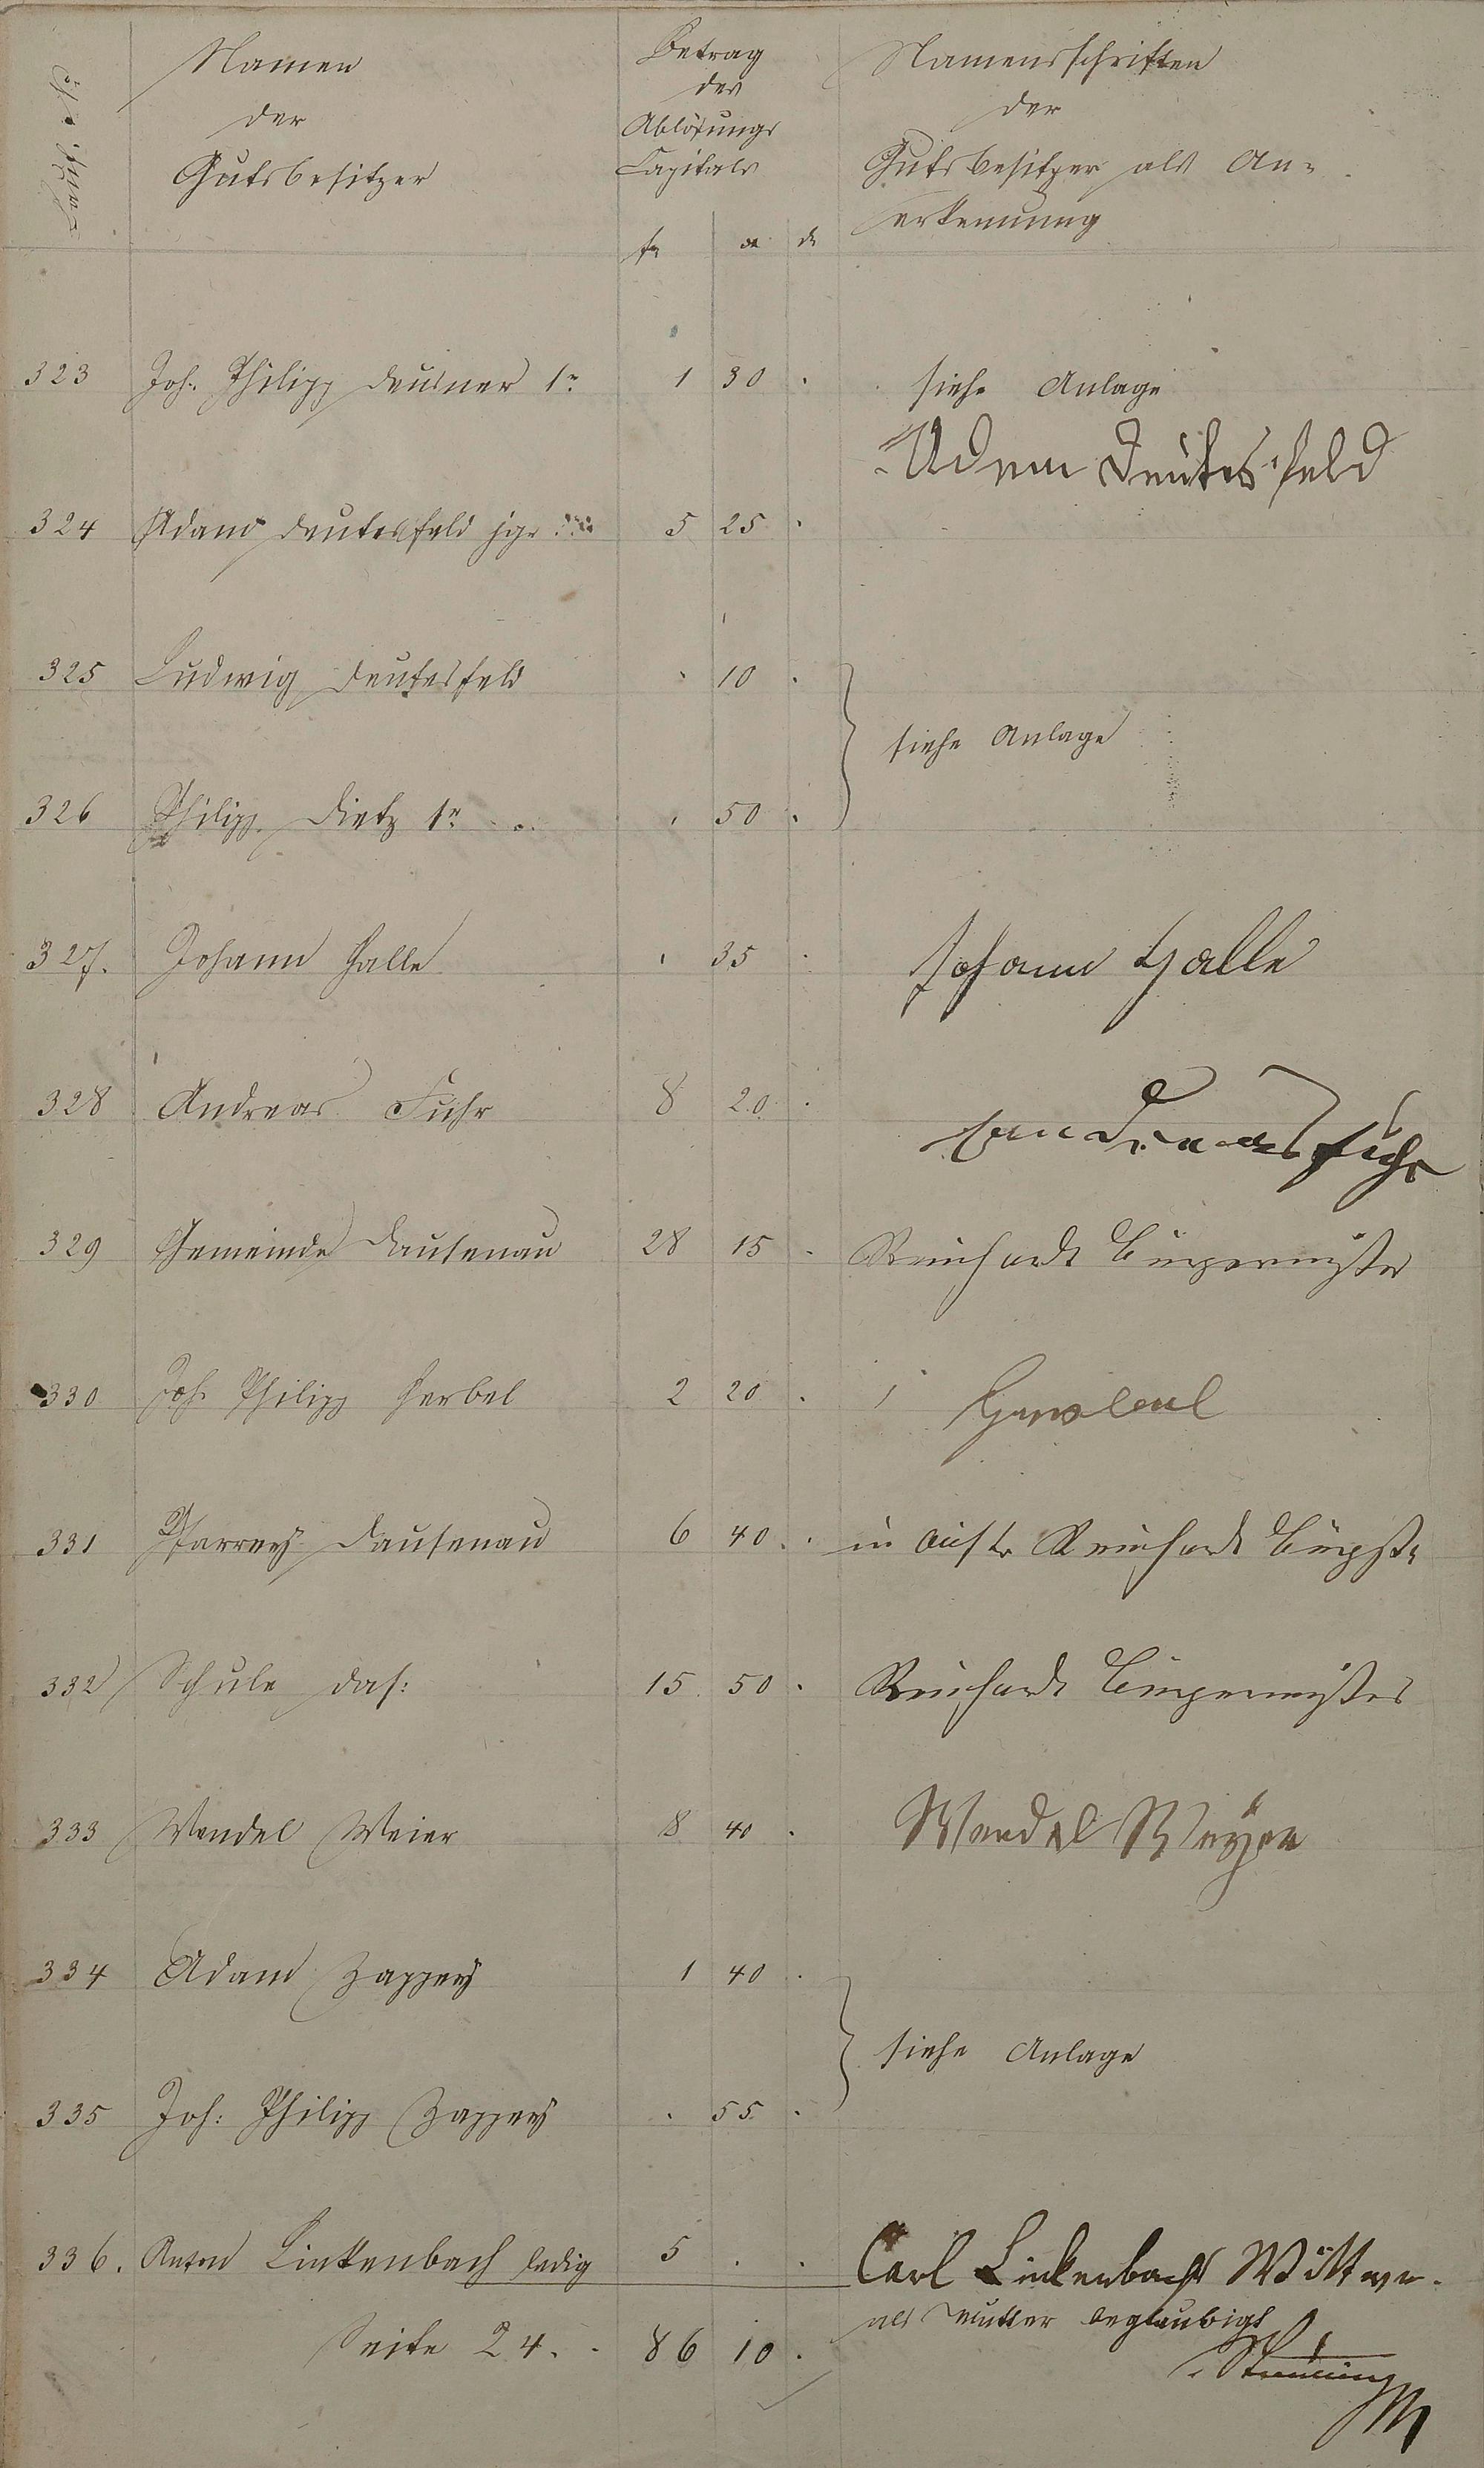 Namen
der
Gutsbesitzer
Betrag
des
Ablösungs
Capitals
Namensschriften
der
Gutsbesitzer als An-
erkennung
323 Joh. Philipp Deusner 1r 1 30 siehe Anlage
Adam Deutesfeld
324 Adam Deutesfeld jgr 5 25
325 Ludwig Deutesfeld 10
siehe Anlage
326 Philipp Dietz 1r 50
327. Johann Halle 35 Johann Halle
328 Andreas Fuhr 8 20 Andreas Fuhr
329 Gemeinde Dausenau 28 15 Reinhardt Bürgermeister
330 Joh. Philipp Herbel 2 20
331 Pfarrey Dausenau 6 40 Reinhardt
332 Schule das: 15 50 Reinhardt Bürgermeister
333 Wendel Weier 8 40 Wendel Weyer
334 Adam Zappey 1 40
siehe Anlage
335 Joh: Philipp Zappey 55
336. Anton Linkenbach ledig 5 Carl Linkenbach Wittwe
als Mutter beglaubigt
Seite 24. 86 10